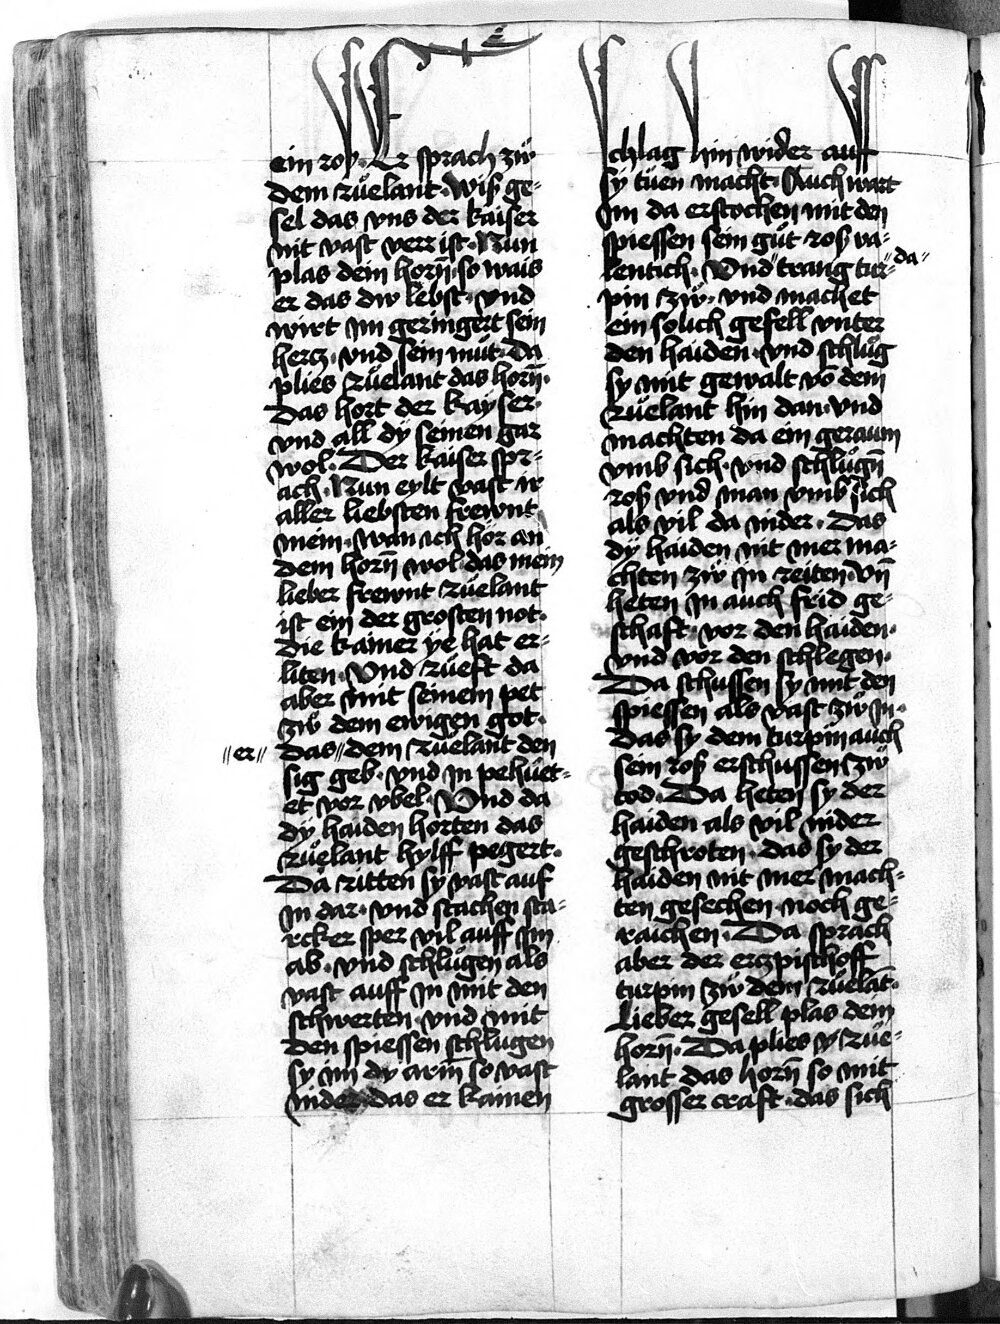 ein roß. Er sprach zw
dem rüelant. Wiß ge-
sel das vns der kaiser
nit vast verr ist. Nun
plas dein horn̄. so wais
er das dw lebst. vnd
wirt im geringert sein
hercz. vnd sein müt. Da
plies rüelant das horn̄.
Das hort der kayser.
vnd all dÿ seinen gar
wol. Der kaiser spr-
ach. Nun eylt vast ir
aller liebsten frewnt
mein. wan ich hör an
dem horn̄ wol. das mein
lieber frewnt rüelant
ist ein der grosten not.
die kainer ye hat er-
liten. Vnd rüeft da
aber mit seinem pet
zw dem ewigen got.
das // dem rüelant den
//er//
sig geb. vnd in pehüet-
et vor vbel. Vnd da
dÿ haiden horten das
rüelant hylff pegert.
Da ritten sy vast auf
in dar. vnd stachen sta-
rcker sper vil auff im
ab. vnd schlügen als
vast auff in mit den
schwerten. vnd mit
den spiessen schlugen
sy im dy arm̄ so vast
nider. das er kainen
schlag hin wider auff
sy tüen macht. Auch wart
im da erstochen mit den
spiessen sein güt roß va-
lentich. Vnd // trang tur-
da//
pin zw. vnd machet
ein solich gefell vnter
den haiden. vnd schlüg
sy mit gewalt vō dem
rüelant hin dan. vnd
machten da ein geraum
vmb sich. vnd schlügn̄
roß vnd man vmb sich
als vil da nider. Das
dÿ haiden nit mer ma-
chten zw in reiten. Vn̄
heten in auch frid ge-
schaft. vor den haiden.
vnd vor den schlegen.
Da schussen sy mit den
spiessen als vast zw in.
Das sy dem turpin auch
sein roß erschussen zw
tod. Da heten sy der
haiden als vil nider
geschroten. das sy der
haiden nit mer mach-
ten gesechen noch ge-
raichen. Da sprach
aber der erczpischoff
turpin zw dem rüelāt.
Lieber gesell plas dein
horn̄. Da plies rüe-
lant das horn̄ so mit
grosser craft. das sich